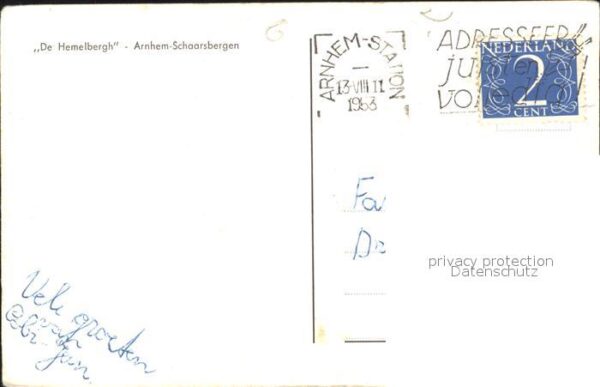 „De Hemelbergh" - Arnhem-Schaarsbergen
ARNHEM-STATION
13-VIII 11
1953
ADRESSEER
VOLLEDIG
NEDERLAND
2
CENT
Fa
D
privacy protection
Datenschutz
Vele groeten
van